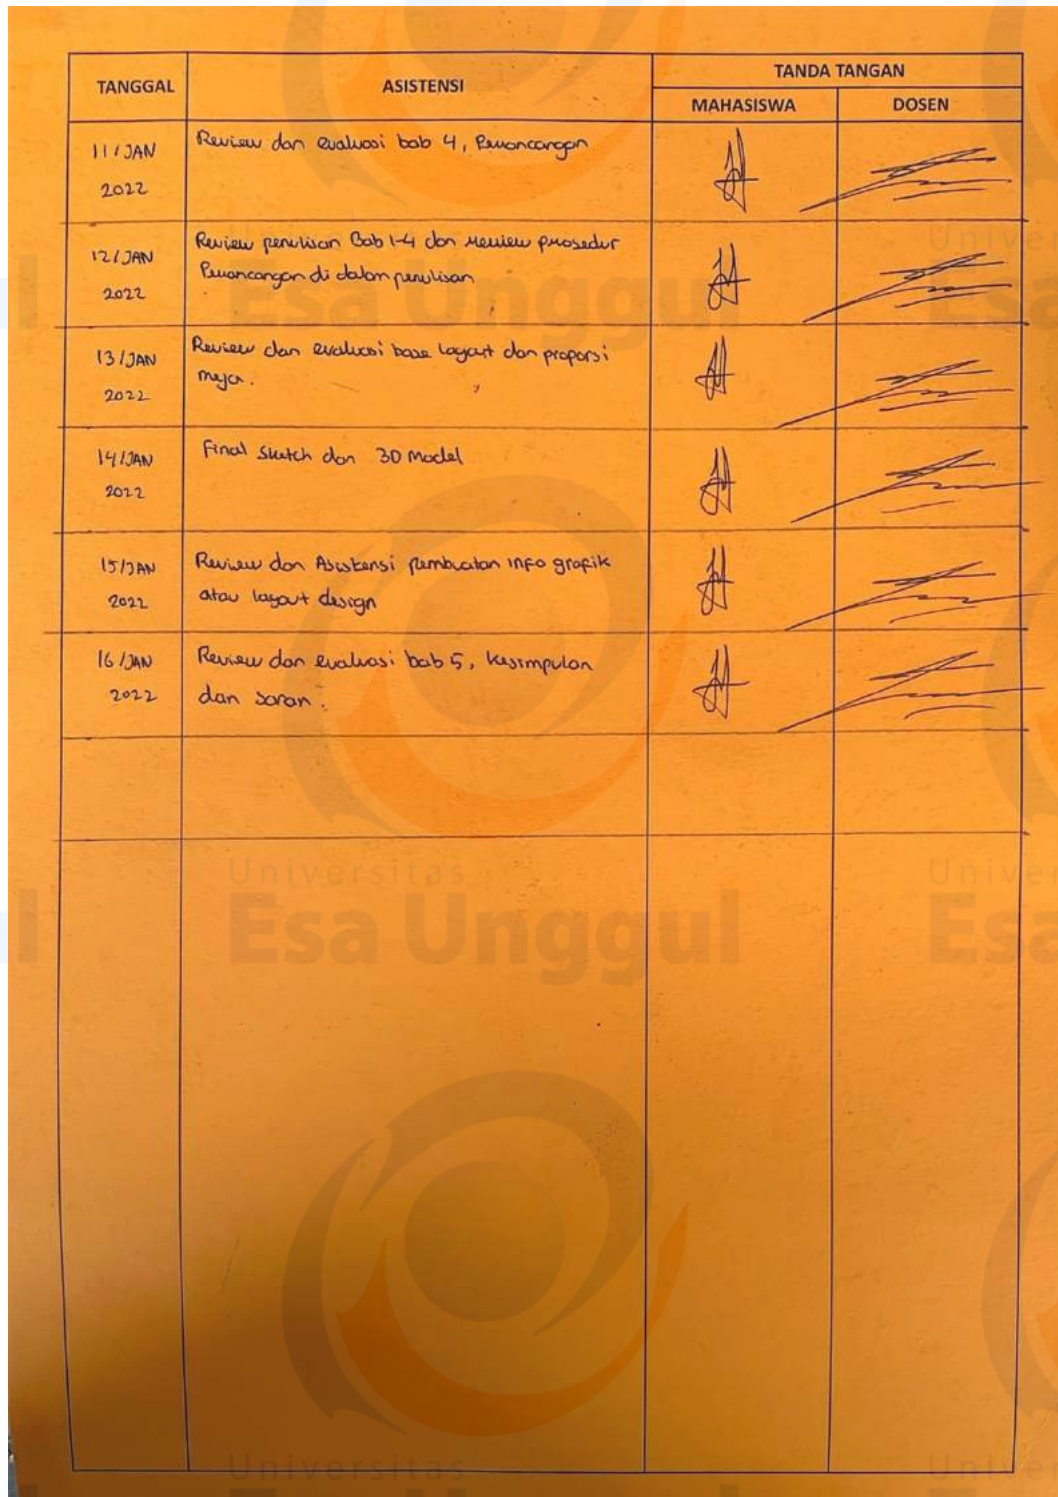 TANGGAL
ASISTENSI
TANDA TANGAN
MAHASISWA
DOSEN
11/JAN
2022
Review dan evaluasi bab 4, Perancangan
12/JAN
2022
Review penulisan Bab 1-4 dan review prosedur
Perancangan di dalam penulisan
13/JAN
2022
Review dan evaluasi base layout dan proporsi
meja.
14/JAN
2022
Final Sketch dan 3D Model
15/JAN
2022
Review dan Asistensi pembuatan info grafik
atau layout design
16/JAN
2022
Review dan evaluasi bab 5, Kesimpulan
dan saran.
Universitas
Esa Unggul
Universitas
Esa Unggul
Universitas